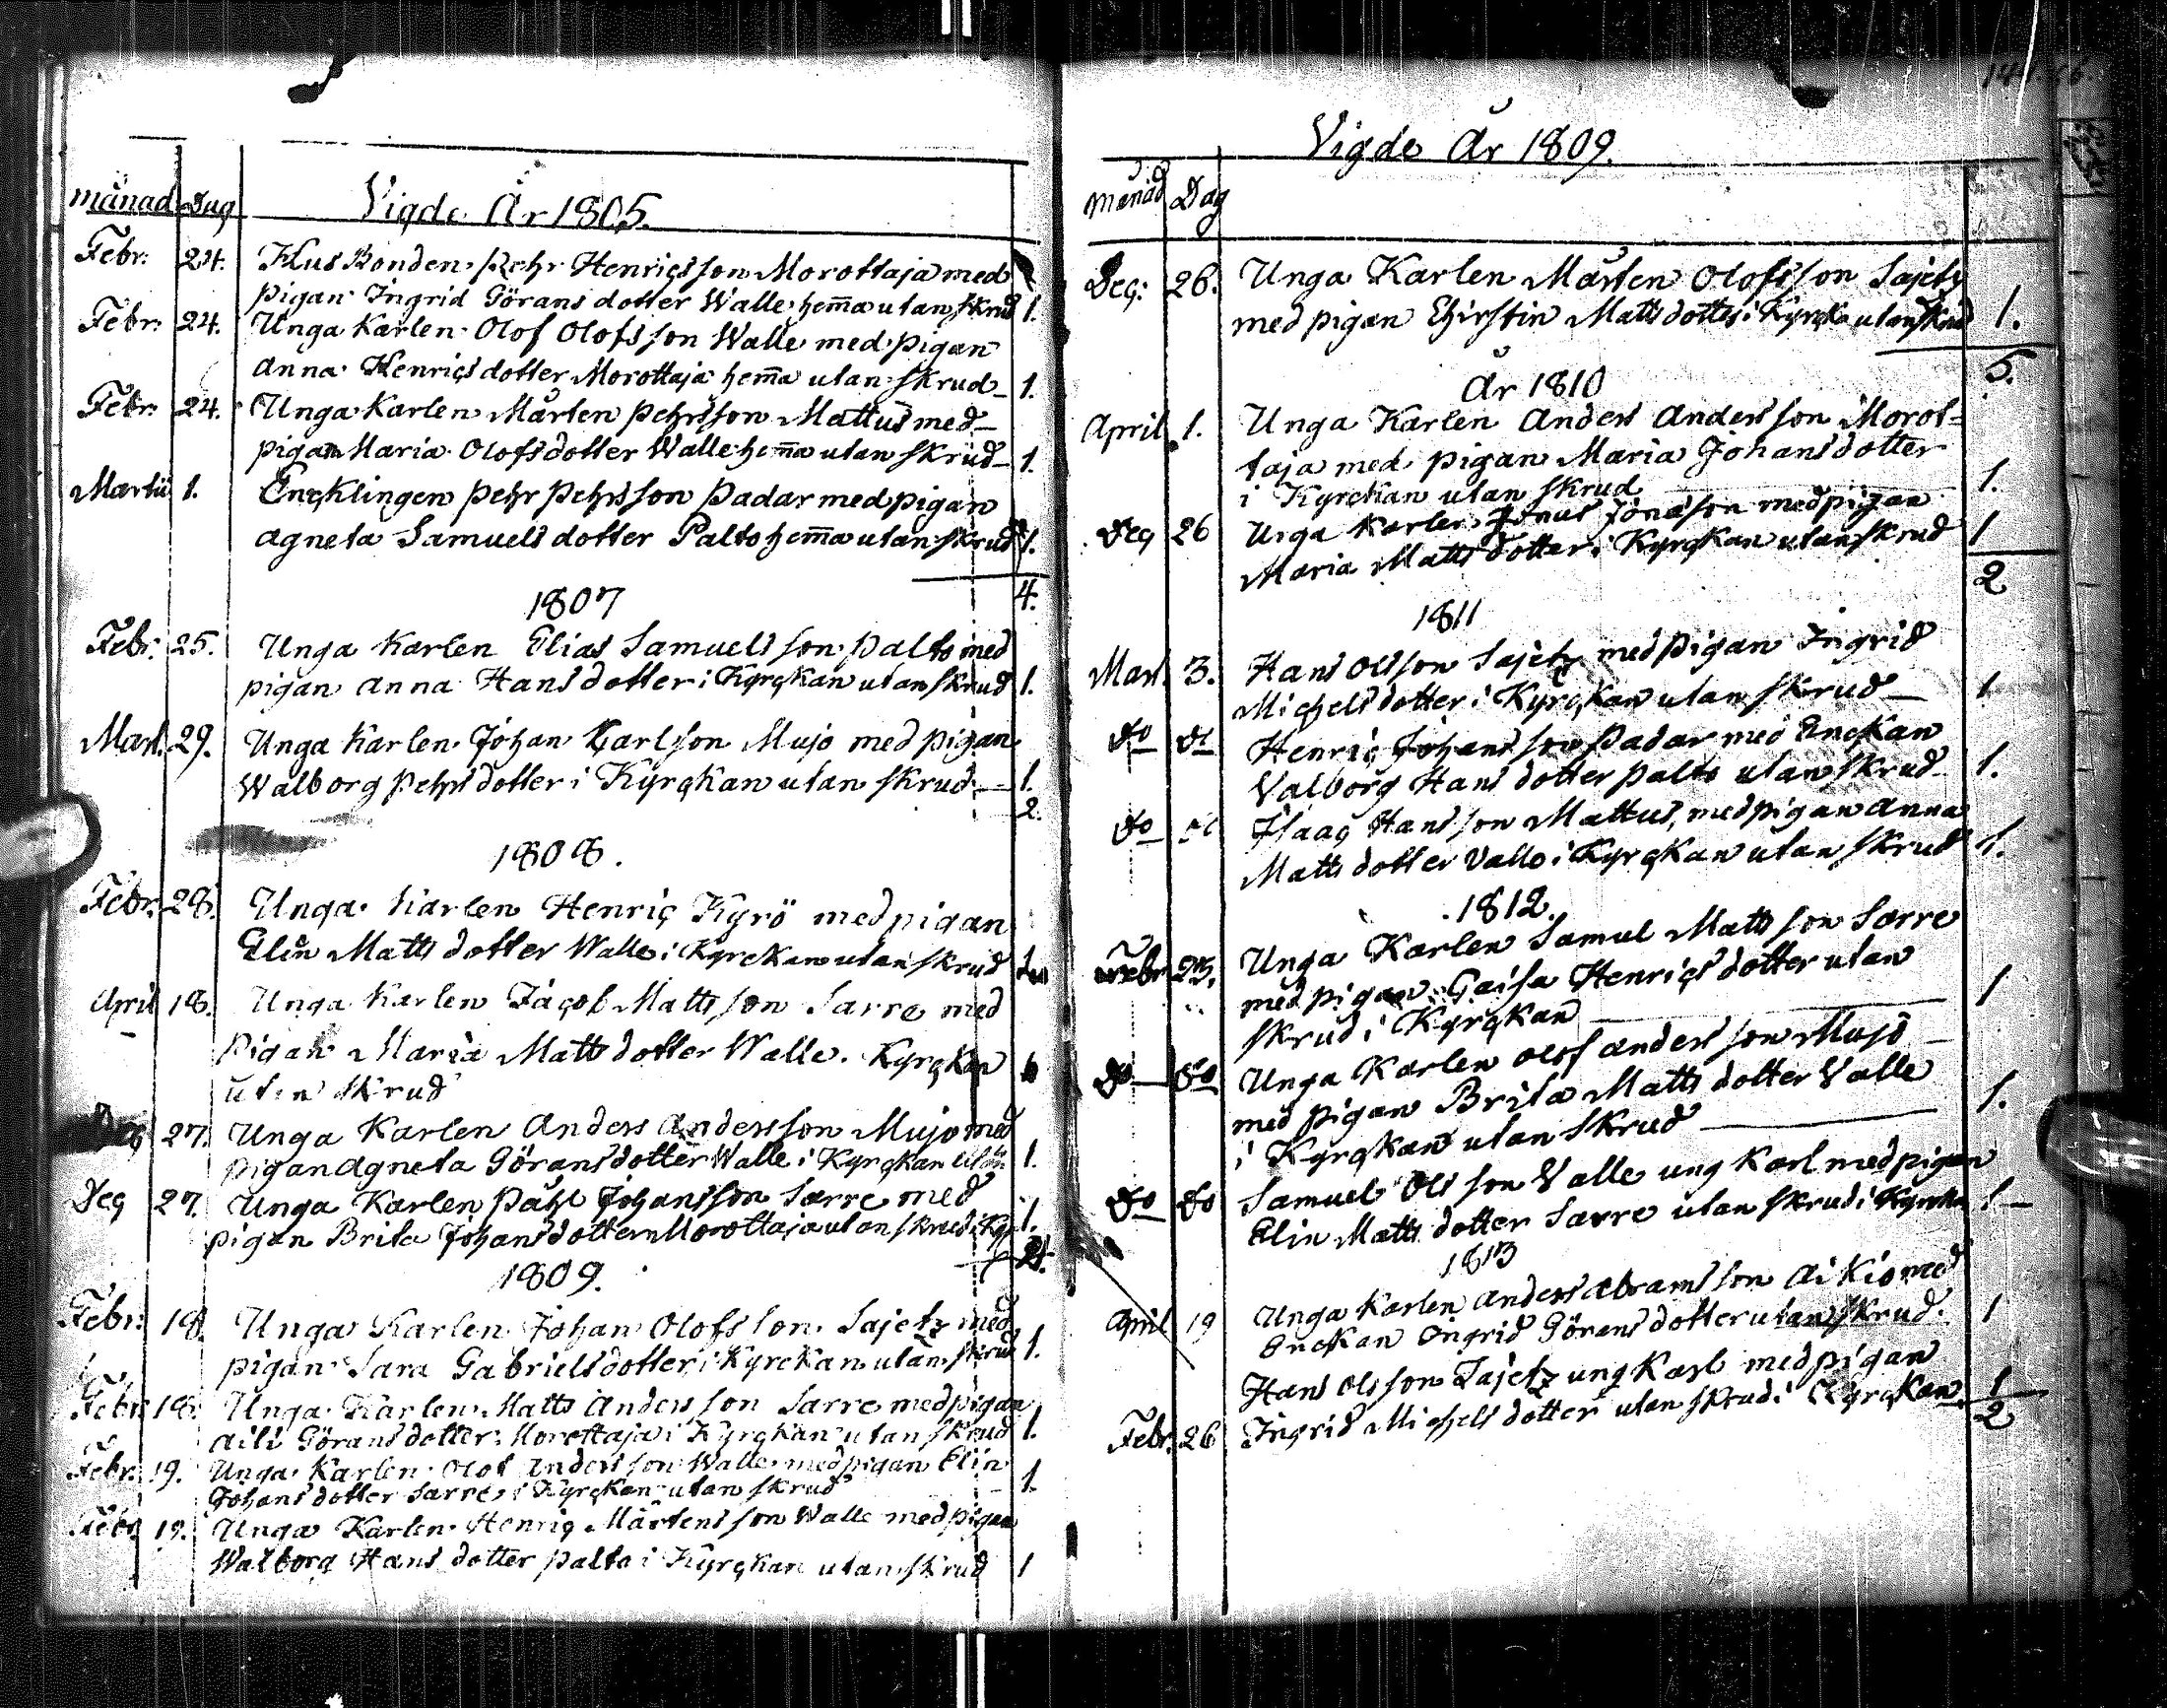 månad Dag Vigde År 1805.
Febr: 24. Husbonden Pehr Henricsson Morottaja med
pigan Ingrid Görans dotter Walle hem̄a utan skrud 1.
Febr: 24. Unga Karlen Olof Olofsson Walle med pigan
Anna Henrics dotter Morottaja hem̄a utan skrud 1.
Febr: 24. Unga Karlen Mårten Pehrsson Mattus med
pigan Maria Olofsdotter Walle hem̄a utan skrud 1.
Martii 1. Encklingen Pehr Pehrsson Padar med pigan
Agneta Samuels dotter Palto hem̄a utan skrud 1.
4.
1807
Febr: 25. Unga Karlen Elias Samuelsson Palto med
pigan Anna Hansdotter i Kyrckan utan skrud 1.
Mart. 29. Unga Karlen Johan Carlson Mujo med pigan
Walborg Pehrsdotter i Kyrckan utan skrud 1.
2.
1808.
Febr: 28. Unga Karlen Henric Kyrö med pigan
Elin Matts dotter Walle i Kyrckan utan skrud
April 18. Unga Karlen Jacob Mattsson Sarre med
pigan Maria Matts dotter Walle. Kyrckan
utan skrud
27. Unga Karlen Anders Andersson Mujo med
pigan Agneta Göransdotter Walle i Kyrckan utan 1.
Dec 27. Unga Karlen Påhl Johansson Sarre med
pigan Brita Johansdotter Morottaja utan skrud i Kyr 1.
4.
1809.
Febr: 18. Unga Karlen Johan Olofsson Sajetz med
pigan Sara Gabrielsdotter i Kyrckan utan skrud 1.
Febr: 18. Unga Karlen Matts Andersson Sarre med pigan
Aili Görans dotter Morottaja i Kyrckan utan skrud 1.
Febr: 19. Unga Karlen Olof Andersson Walle med pigan Elin
Johans dotter Sarre i Kyrckan utan skrud 1.
Febr 19. Unga Karlen Henric Mårtensson Walle med pigan
Walborg Hans dotter Palto i Kyrckan utan skrud 1
Vigde År 1809.
månad Dag
Dec: 26. Unga Karlen Mårten Olofsson Sajetz
med pigan Chirstin Matts dotter i Kyrcka utan skrud 1.
5.
År 1810
April 1. Unga Karlen Anders Andersson Morot=
taja med pigan Maria Johansdotter
i Kyrckan utan skrud 1.
Dec 26 Unga Karlen Jonas Jonasson med pigan
Maria Matts dotter i Kyrckan utan skrud 1
2
1811
Mart. 3. Hans Olsson Sajetz med pigan Ingrid
Michelsdotter i Kyrckan utan skrud 1
do do Henric Johansson Padar med Enckan
Valborg Hans dotter Palto utan skrud 1.
do do Isaac Hansson Mattus, med pigan Anna
Matts dotter Valle i Kyrckan utan skrud 1.
1812.
Febr 25. Unga Karlen Samul Mattsson Sarre
med pigan Caisa Henricsdotter utan
skrud i Kyrckan 1
do do Unga Karlen Olof Andersson Mujo
med pigan Brita Matts dotter Valle
i Kyrckan utan skrud 1.
do do Samuel Olsson Valle ung Karl med pigan
Elin Matts dotter Sarre utan skrud i Kyrcka 1
1813
April 19 Unga Karlen Anders Abramsson Aikio med
Enckan Ingrid Görans dotter utan skrud 1
Hans Olsson Sajetz ung Karl med pigan
Febr. 26 Ingrid Michels dotter utan skrud i Kyrckan 1
2